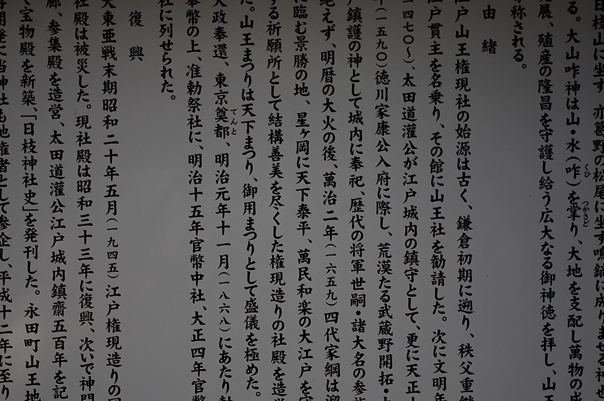 日枝山に坐す、亦葛野の松尾に坐す鳴鏑に成りませる神也
る。大山咋神は山・水（咋）を掌り、大地を支配し萬物の成
発展、殖産の隆昌を守護し給う広大なる御神徳を拝し、山王
称される。
由緒
江戸山王権現社の始源は古く、鎌倉初期に遡り、秩父重継
江戸貫主を名乗り、その館に山王社を勧請した。次に文明年
一四七〇～）、太田道灌公が江戸城内の鎮守として、更に天正十
（一五九〇）徳川家康公入府に際し、荒漠たる武蔵野開拓・
戸鎮護の神として城内に奉祀、歴代の将軍世嗣・諸大名の参
絶えず、明暦の大火の後、萬治二年（一六五九）四代家綱は溜
に臨む景勝の地、星ヶ岡に天下泰平、萬民和楽の大江戸を守
する祈願所として結構善美を尽くした権現造りの社殿を造営
た。山王まつりは天下まつり、御用まつりとして盛儀を極めた。
大政奉還、東京奠都、明治元年十一月（一八六八）にあたり勅
奉幣の上、准勅祭社に、明治十五年官幣中社、大正四年官幣
社に列せられた。
復興
大東亜戦末期昭和二十年五月（一九四五）江戸権現造りの
社殿は被災した。現社殿は昭和三十三年に復興、次いで神門
廊、参集殿を造営、太田道灌公江戸城内鎮齋五百年を記
て宝物殿を新築、「日枝神社史」を発刊した。永田町山王地
再開発に当神社も地権者として参企し、平成十二年に至り